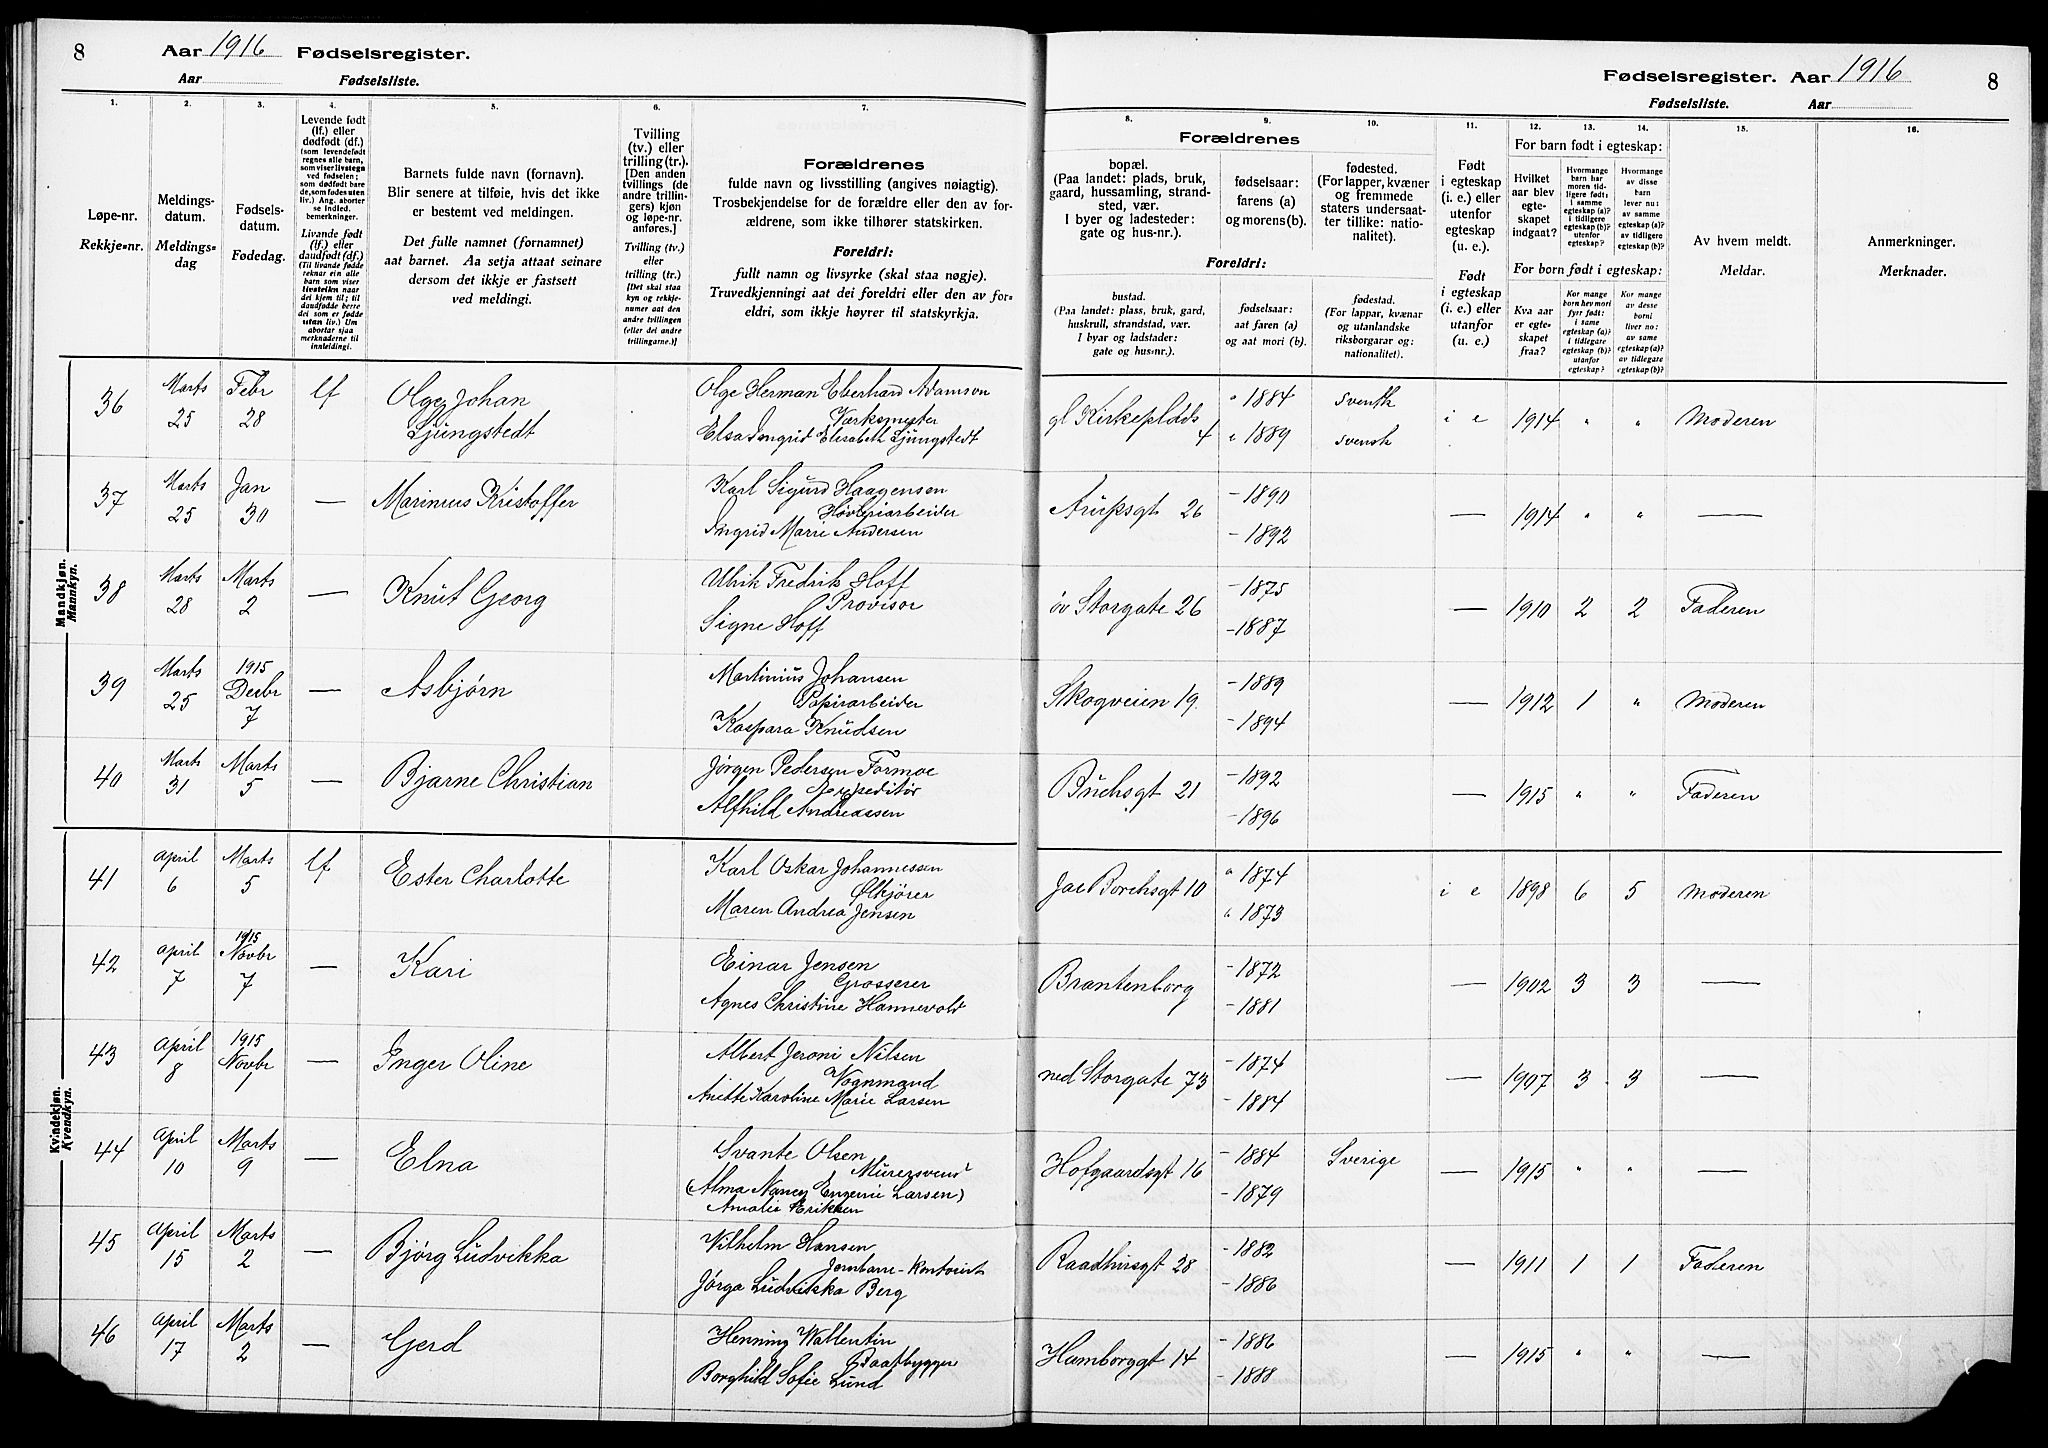 8 Aar 1916 Fødselsregister.
Aar Fødselsliste.
Fødselsregister. Aar 1916 8
Fødselsliste. Aar
1. 2. 3. 4. 5. 6. 7. 8. 9. 10. 11. 12. 13. 14. 15. 16.
Løpe-nr.
Rekkje-nr.
Meldings-
datum.
Meldings-
dag
Fødsels-
datum.
Fødedag.
Levende født
(lf.) eller
dødfødt (df.)
(som levendefødt
regnes alle barn,
som viser livstegn
ved fødselen;
som dødfødt bare
de, som fødes uten
liv.) Ang. aborter
se indled.
bemerkninger.
Livande født
(lf.) eller
daudfødt (df.)
(Til livande fødde
reknar ein alle
barn som viser
livsteikn naar
dei kjem til; til
daudfødde berre
dei som er fødde
utan liv.) Um
abortar sjaa
merknaderne til
innleidingi.
Barnets fulde navn (fornavn).
Blir senere at tilføie, hvis det ikke
er bestemt ved meldingen.
Det fulle namnet (fornamnet)
aat barnet. Aa setja attaat seinare
dersom det ikkje er fastsett
ved meldingi.
Tvilling
(tv.) eller
trilling (tr.).
[Den anden
tvillings (de
andre trillin-
gers) kjøn
og løpe-nr.
anføres.]
Tvilling (tv.)
eller
trilling (tr.)
[Det skal staa
kyn og rekkje-
numer aat den
andre tvillingen
(eller dei andre
trillingarne.)]
Forældrenes
fulde navn og livsstilling (angives nøiagtig).
Trosbekjendelse for de forældre eller den av for-
ældrene, som ikke tilhører statskirken.
Foreldri:
fullt namn og livsyrke (skal staa nøgje).
Truvedkjenningi aat dei foreldri eller den av for-
eldri, som ikkje høyrer til statskyrkja.
Forældrenes
bopæl.
(Paa landet: plads, bruk,
gaard, hussamling, strand-
sted, vær.
I byer og ladesteder:
gate og hus-nr.).
fødselsaar:
farens (a)
og morens (b).
fødested.
(For lapper, kvæner
og fremmede
staters undersaat-
ter tillike: natio-
nalitet).
Foreldri:
bustad.
(Paa landet: plass, bruk, gard,
huskrull, strandstad, vær.
I byar og ladstader:
gate og hus-nr.).
fødselsaar:
aat faren (a)
og aat mori (b).
fødestad.
(For lappar, kvænar
og utanlandske
riksborgarar og:
nationalitet).
Født
i egteskap
(i. e.) eller
utenfor
egteskap
(u. e.).
Født
i egteskap
(i. e.) eller
utanfor
(u. e.).
For barn født i egteskap:
Hvilket
aar blev
egte-
skapet
indgaat?
Hvormange
barn har
moren tid-
ligere født:
i samme
egteskap (a)?
i tidligere
egteskap (b)?
utenfor
egteskap?
Hvormange
av disse
barn
lever nu:
av samme
egteskap (a)?
av tidligere
egteskap (b)?
For born født i egteskap:
Kva aar
er egte-
skapet
fraa?
Kor mange
born hev mori
fyrr født:
i same
egteskap (a)?
i tidlegare
egteskap (b)?
utanfor
egteskap?
Kor mange
av desse
borni
liver no:
av same
egteskap (a)?
av tidlegare
egteskap (b)?
Av hvem meldt.
Meldar.
Anmerkninger.
Merknader.
Mandkjøn.
Mannkyn.
36 Marts 25 Febr 28 lf Olge Johan
Ljungstedt
Olge Herman Eberhard Adamson
Værksmester
Elsa Ingrid Elisabeth Ljungstedt
gl Kirkeplads 4 " 1884 svensk
" 1889 svensk
i e 1914 " " Moderen
37 Marts 25 Jan 30 — Marinius Kristoffer
Karl Sigurd Haagensen
Høvleriarbeider
Ingrid Marie Andersen
Arupsgt 26 - 1890
- 1892
1914 " " —
38 Marts 28 Marts 2 — Knut Georg
Ulrik Fredrik Hoff
Provisor
Signe Hoff
øv Storgate 26 - 1875
- 1887
— 1910 2 2 Faderen
39 Marts 25 1915 Decbr 7 — Asbjørn
Martinius Johansen
Papirarbeider
Kaspara Knudsen
Skogveien 19. - 1889
- 1894
— 1912 1 " Moderen
40 Marts 31 Marts 5 — Bjarne Christian
Jørgen Pedersen Formoe
Expeditør
Alfhild Andreassen
Buchsgt 21 - 1892
- 1896
— 1915 " " Faderen
Kvindekjøn.
Kvendkyn.
41 April 6 Marts 5 lf Ester Charlotte
Karl Oskar Johannessen
Ølkjører
Maren Andrea Jensen
Jac Borchsgt 10 " 1874
" 1873
i e 1898 6 5 Moderen
42 April 7 1915 Novbr 7 — Kari
Einar Jensen
Grosserer
Agnes Christine Hannevold
Brantenborg - 1872
- 1881
— 1902 3 3 —
43 April 8 1915 Novbr 1 — Inger Oline
Albert Jeroni Nilsen
Vognmand
Anette Karoline Marie Larsen
ned Storgate 73 - 1874
- 1884
— 1907 3 3 —
44 April 10 Marts 9 — Elna
Svante Olsen
Murersvend
(Alma Nancy Eugenie Larsen)
Amalie Eriksen
Hofgaardsgt 16 - 1884 Sverige
- 1879
— 1915 " " —
45 April 15 Marts 2 — Bjørg Ludvikka
Vilhelm Hansen
Jernbane-kontorist
Jørga Ludvikka Berg
Raadhusgt 28 - 1882
- 1886
— 1911 1 1 Faderen
46 April 17 Marts 2 — Gerd
Henning Wallentin
Baatbygger
Borghild Sofie Lund
Hamborggt 14 - 1886
- 1888
— 1915 " " —